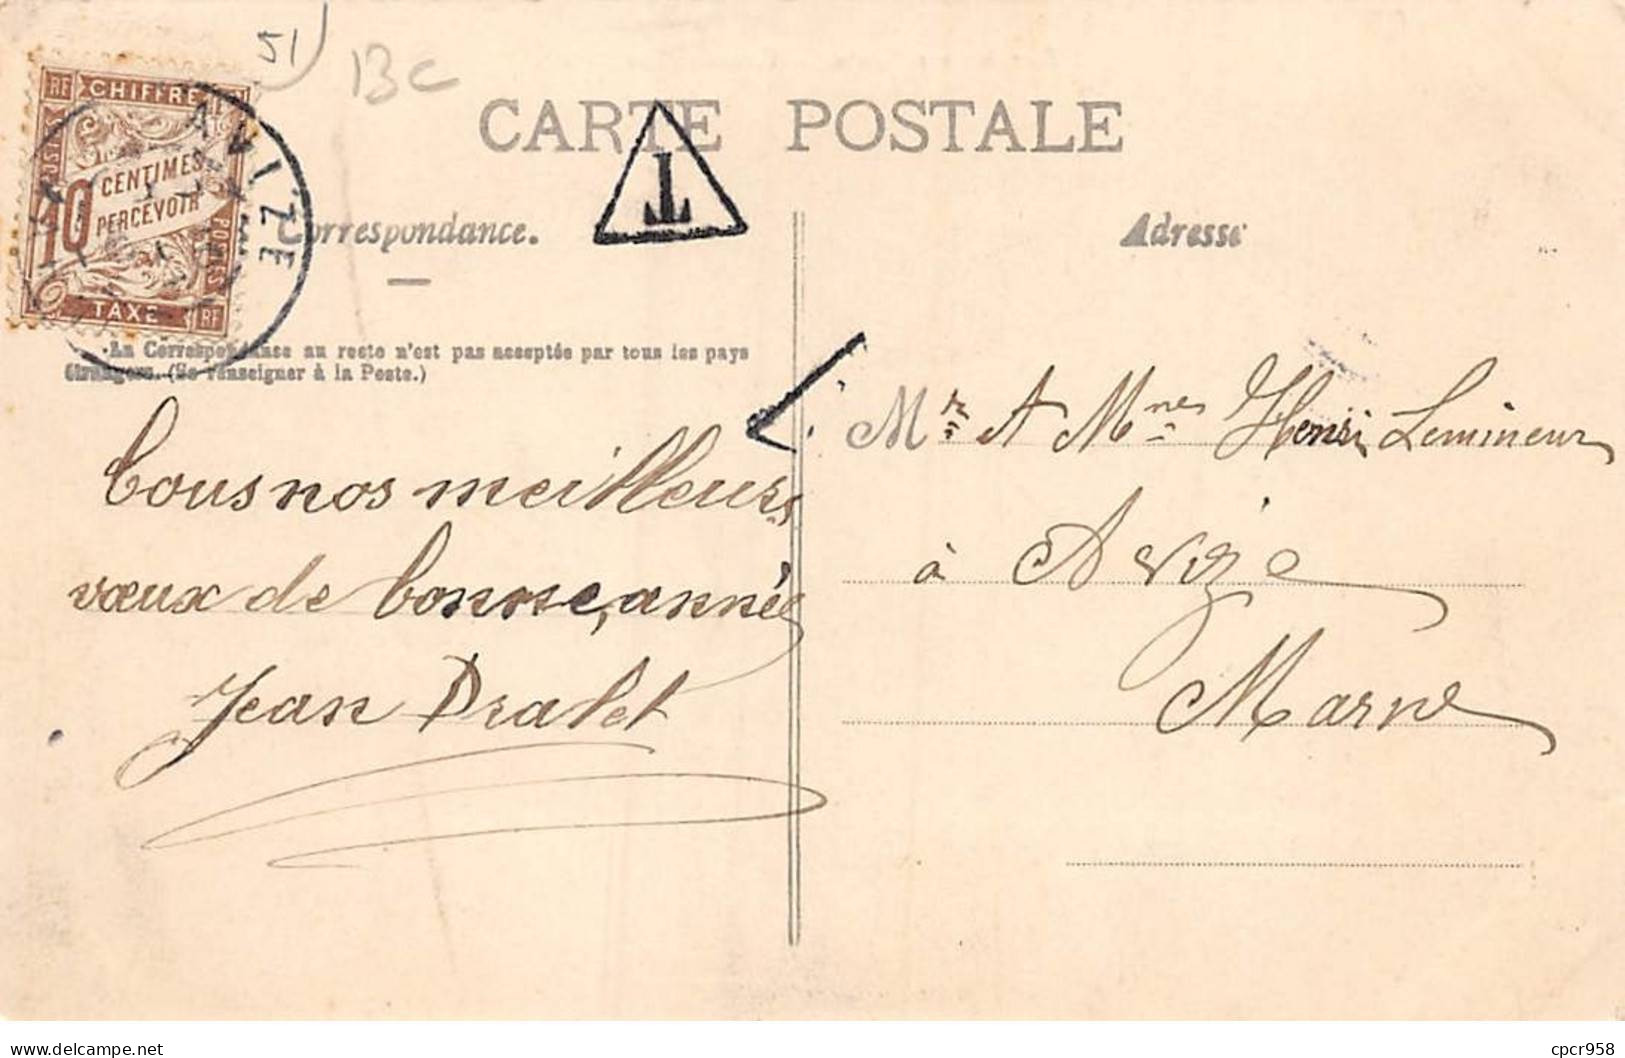 51
13c
RF CHIFFRE
POSTES
10 CENTIMES
PERCEVOIR
POSTES
TAXE RF
AVIZE
CARTE POSTALE
T
Correspondance.
Adresse
La Correspondance au recto n'est pas acceptée par tous les pays
étrangers. (Se renseigner à la Poste.)
Tous nos meilleurs
vœux de bonne, année
Jean Pralet
Mr A Mmes Henri Lemineur
à Avize
Marne
delcampe.net
cpcr958